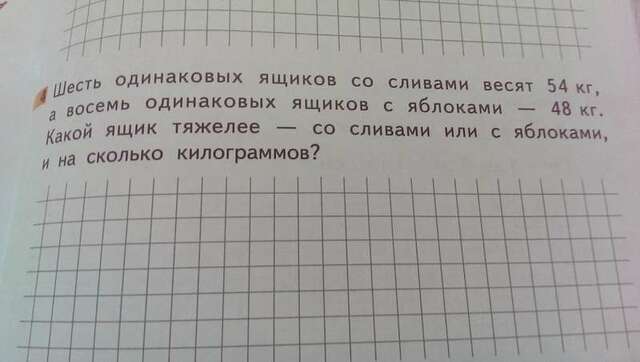 Шесть одинаковых ящиков со сливами весят 54 кг,
а восемь одинаковых ящиков с яблоками — 48 кг.
Какой ящик тяжелее — со сливами или с яблоками,
и на сколько килограммов?